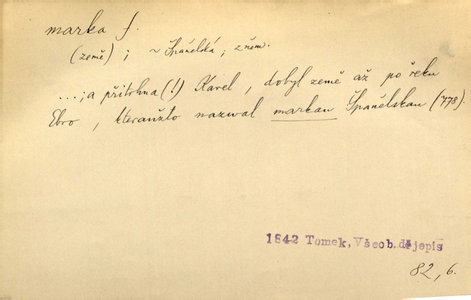 marka f.
(země); ~ Španělská, z něm.
...; a přitrhna (!) Karel, dobyl země až po řeku
Ebro, kteraužto nazwal markau Španělskau (778).
1842 Tomek, Všeob. dějepis
82, 6.